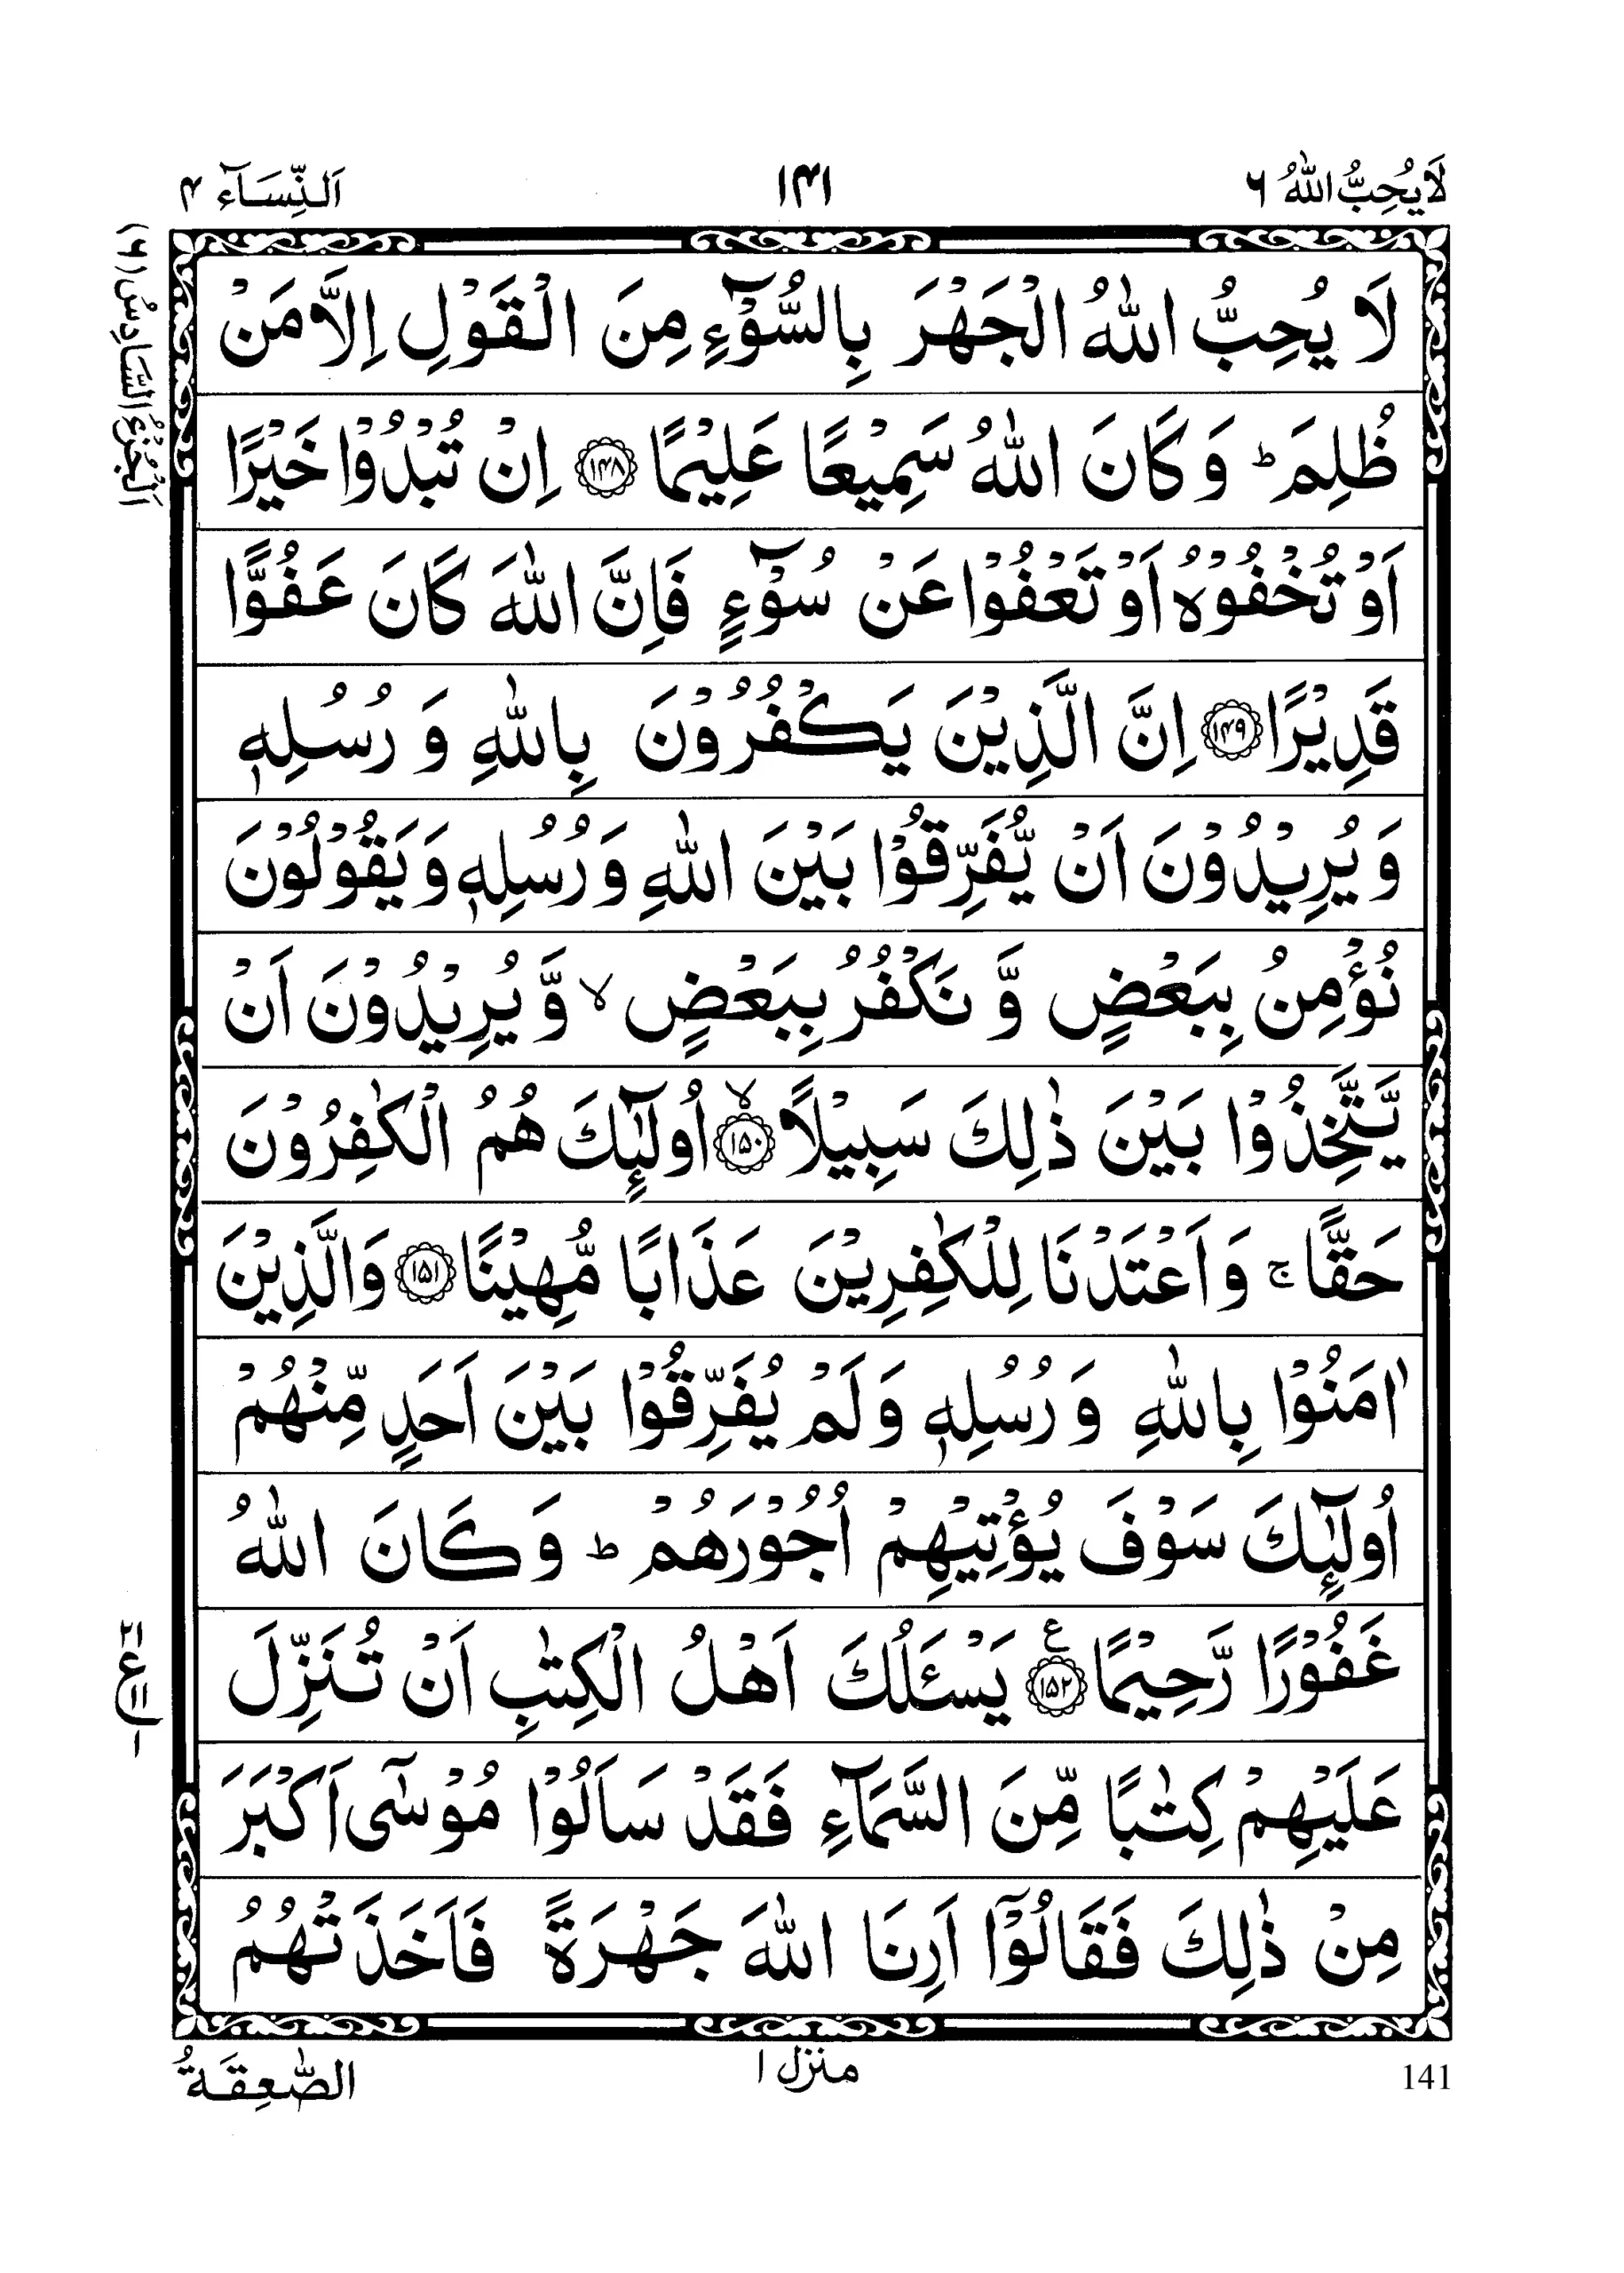 لَا يُحِبُّ اللّٰهُ ٦
١٤١
اَلنِّسَآء ٤
اَلْجُزْءُ السَّادِسُ (٦)
لَا يُحِبُّ اللّٰهُ الْجَهْرَ بِالسُّوْٓءِ مِنَ الْقَوْلِ اِلَّا مَنْ
ظُلِمَ ؕ وَ كَانَ اللّٰهُ سَمِيْعًا عَلِيْمًا ﴿١٤٨﴾ اِنْ تُبْدُوْا خَيْرًا
اَوْ تُخْفُوْهُ اَوْ تَعْفُوْا عَنْ سُوْٓءٍ فَاِنَّ اللّٰهَ كَانَ عَفُوًّا
قَدِيْرًا ﴿١٤٩﴾ اِنَّ الَّذِيْنَ يَكْفُرُوْنَ بِاللّٰهِ وَ رُسُلِهٖ
وَ يُرِيْدُوْنَ اَنْ يُّفَرِّقُوْا بَيْنَ اللّٰهِ وَ رُسُلِهٖ وَ يَقُوْلُوْنَ
نُؤْمِنُ بِبَعْضٍ وَّ نَكْفُرُ بِبَعْضٍ ۙ وَّ يُرِيْدُوْنَ اَنْ
يَّتَّخِذُوْا بَيْنَ ذٰلِكَ سَبِيْلًا ۙ﴿١٥٠﴾ اُولٰٓئِكَ هُمُ الْكٰفِرُوْنَ
حَقًّا ۚ وَ اَعْتَدْنَا لِلْكٰفِرِيْنَ عَذَابًا مُّهِيْنًا ﴿١٥١﴾ وَ الَّذِيْنَ
اٰمَنُوْا بِاللّٰهِ وَ رُسُلِهٖ وَ لَمْ يُفَرِّقُوْا بَيْنَ اَحَدٍ مِّنْهُمْ
اُولٰٓئِكَ سَوْفَ يُؤْتِيْهِمْ اُجُوْرَهُمْ ؕ وَ كَانَ اللّٰهُ
غَفُوْرًا رَّحِيْمًا ﴿١٥٢﴾ ع يَسْـَٔلُكَ اَهْلُ الْكِتٰبِ اَنْ تُنَزِّلَ
عَلَيْهِمْ كِتٰبًا مِّنَ السَّمَآءِ فَقَدْ سَاَلُوْا مُوْسٰٓى اَكْبَرَ
مِنْ ذٰلِكَ فَقَالُوْٓا اَرِنَا اللّٰهَ جَهْرَةً فَاَخَذَتْهُمُ
الصّٰعِقَةُ
منزل ١
141